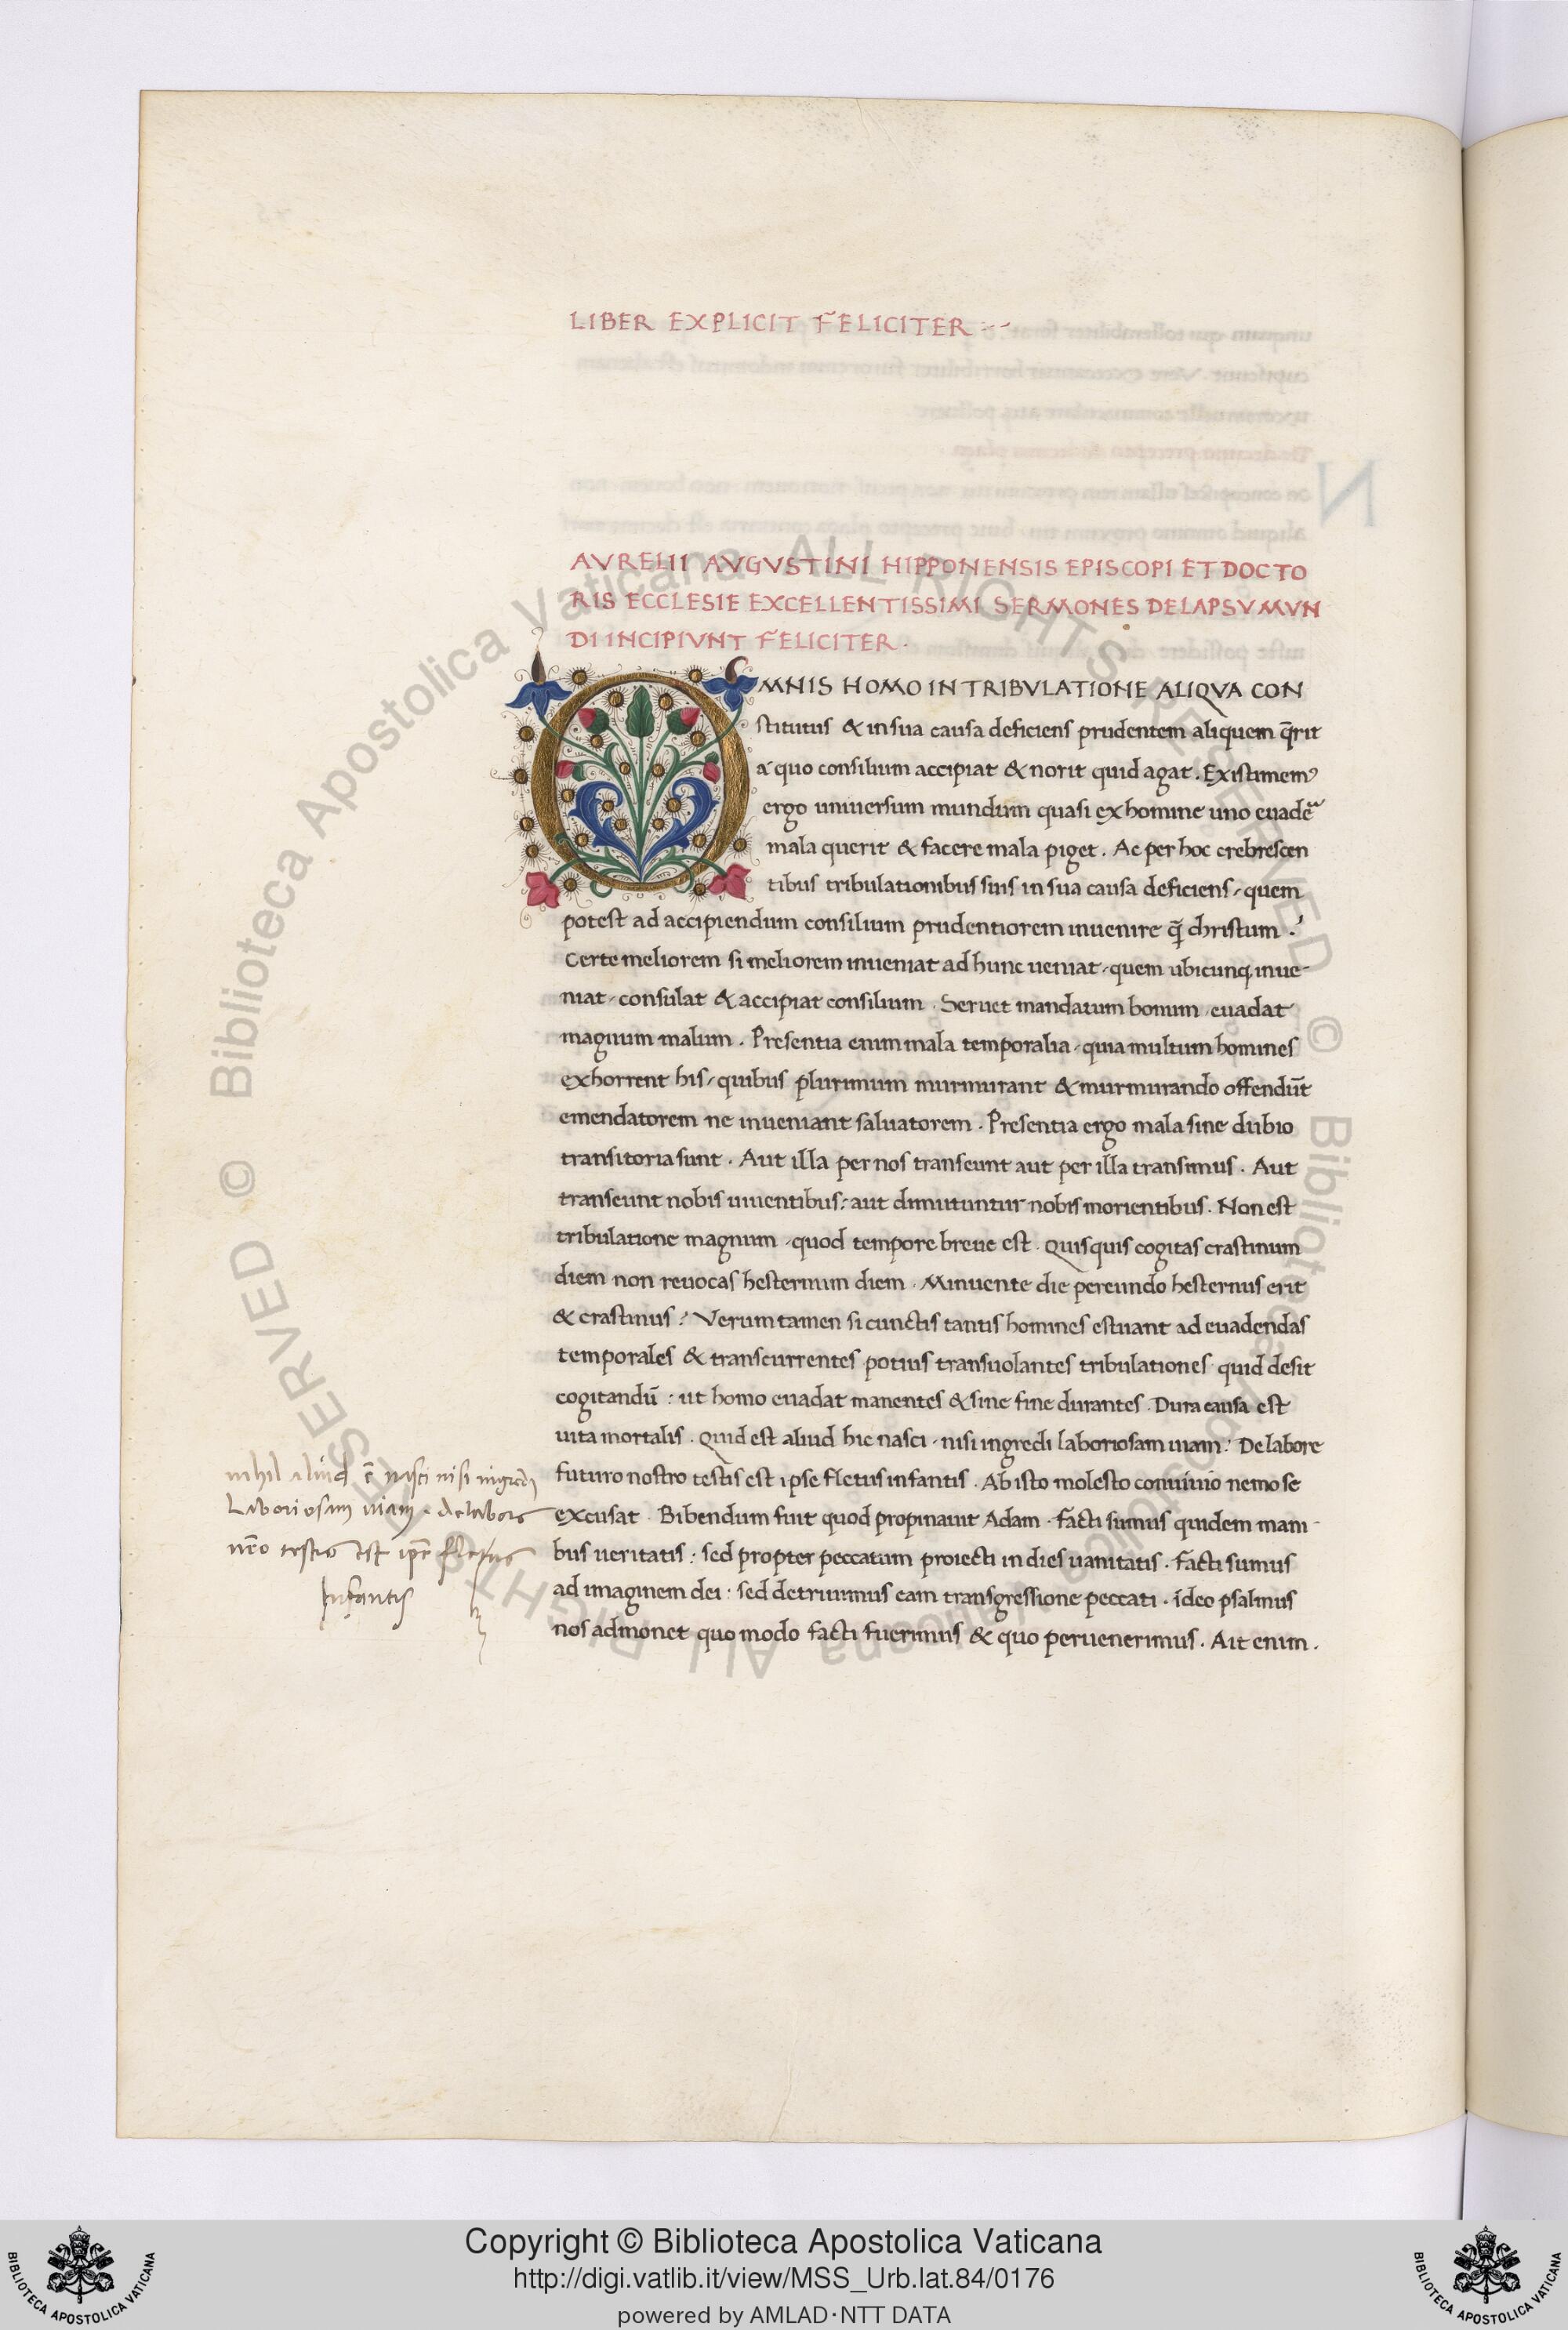 LIBER EXPLICIT FELICITER
AVRELII AVGVSTINI HIPPONENSIS EPISCOPI ET DOCTO
RIS ECCLESIE EXCELLENTISSIMI SERMONES DE LAPSV MVN
DI INCIPIVNT FELICITER.
OMNIS HOMO IN TRIBVLATIONE ALIQVA CON
stitutus & in sua causa deficiens prudentem aliquem q̄rit
a quo consilium accipiat & norit quid agat. Existimemꝰ
ergo uniuersum mundum quasi ex homine uno
mala querit & facere mala piget. Ac per hoc crebrescen
tibus tribulationibus suis in sua causa deficiens, quem
potest ad accipiendum consilium prudentiorem inuenire q̄ christum.
Certe meliorem si meliorem inueniat ad hunc ueniat, quem ubicunq; inue-
niat, consulat & accipiat consilium. Seruet mandatum bonum euadat
magnum malum. Presentia enim mala temporalia, quia multum homines
exhorrent his, quibus plurimum murmurant & murmurando offendūt
emendatorem ne inueniant saluatorem. Presentia ergo mala sine dubio
transitoria sunt. Aut illa per nos transeunt aut per illa transimus. Aut
transeunt nobis uiuentibus: aut dimittuntur nobis morientibus. Non est
tribulatione magnum, quod tempore breue est. Quisquis cogitas crastinum
diem non reuocas hesternum diem. Minuente die pereundo hesternus erit
& crastinus? Verum tamen si cunctis tantis homines estuant ad euadendas
temporales & transcurrentes potius transuolantes tribulationes quid desit
cogitandū: ut homo euadat manentes & sine fine durantes. Dura causa est
uita mortalis. Quid est aliud hic nasci, nisi ingredi laboriosam uiam? De labore
futuro nostro testis est ipse fletus infantis. Ab isto molesto conuiuio nemo se
excusat. Bibendum fuit quod propinauit Adam. facti sumus quidem mani-
bus ueritatis: sed propter peccatum proiecti in dies uanitatis. facti sumus
ad imaginem dei: sed detriuimus eam transgressione peccati. ideo psalmus
nos admonet quo modo facti fuerimus & quo peruenerimus. Ait enim.
nihil aliud ē nasci nisi ingredi
Laboriosam uiam. de labore
nr̄o testis est ip̄e fletus
Infantis
Copyright © Biblioteca Apostolica Vaticana
http://digi.vatlib.it/view/MSS_Urb.lat.84/0176
powered by AMLAD·NTT DATA
BIBLIOTECA APOSTOLICA VATICANA
BIBLIOTECA APOSTOLICA VATICANA
© Biblioteca Apostolica Vaticana ALL RIGHTS RESERVED
© Biblioteca Apostolica Vaticana ALL RIGHTS RESERVED